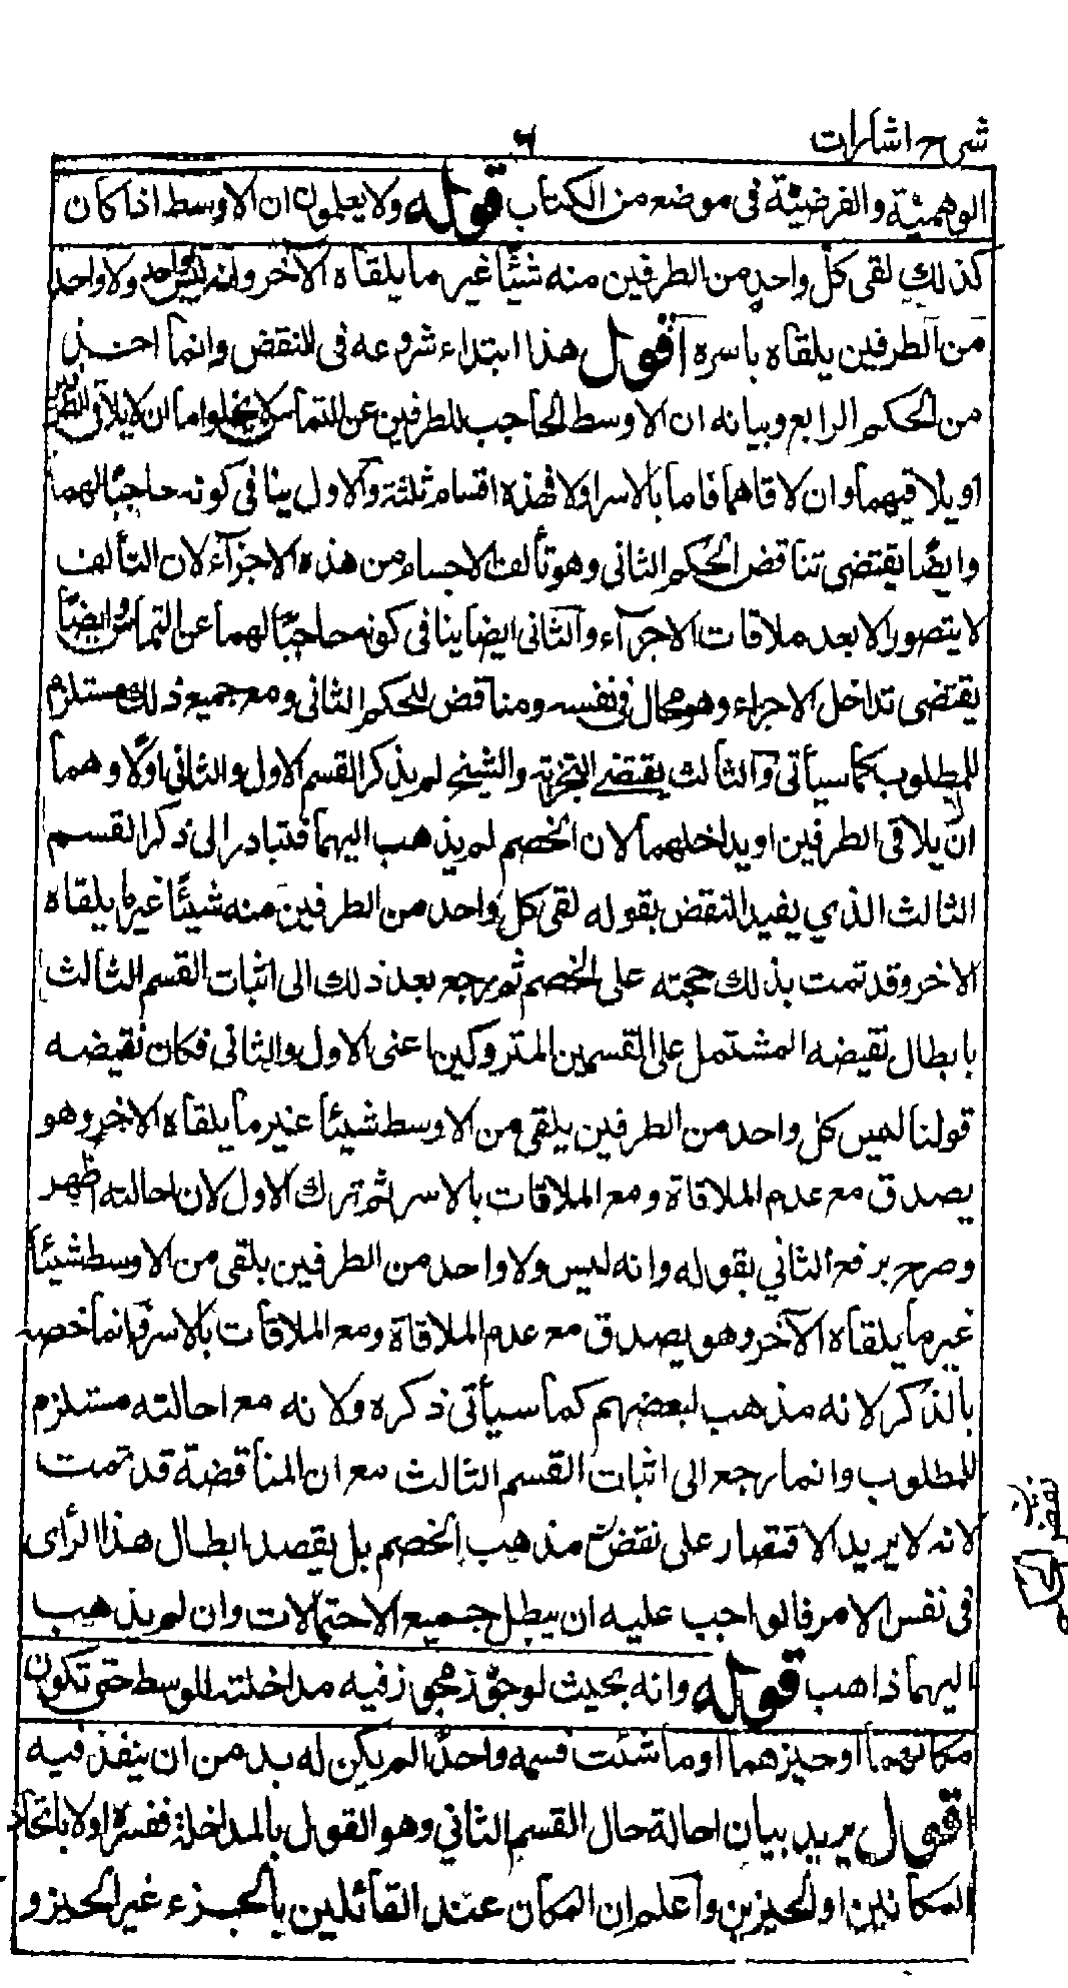 شرح اشارات
٦
الوهميّة والفرضيّة فى موضعه من الكتاب قوله ولا يعلمون ان الاوسط اذا كان
كذلك لقى كلّ واحدٍ من الطرفين منه شيئًا غير ما يلقاه الآخر وانه ليس واحد ولا واحد
من الطرفين يلقاه باسره اقول هذا ابتداء شروعه فى النقض وانما اخذ
من الحكم الرابع وبيانه ان الاوسط الحاجب للطرفين عن التماس لا يخلوا ما ان لا يلاقى الطرفين
او يلاقيهما وان لاقاهما فاما بالاسر اولا فهذه اقسام ثلثة والاول ينافى كونه حاجبًا لهما
وايضًا يقتضى تناقض الحكم الثانى وهو تألف الاجسام من هذه الاجزآء لان التألف
لا يتصور الا بعد ملاقات الاجزآء والثانى ايضا ينافى كونه حاجبًا لهما عن التماس وايضًا
يقتضى تداخل الاجزاء وهو محال فى نفسه ومناقض للحكم الثانى ومع جميع ذلك مستلزم
للمطلوب كما سيأتى والثالث يقتضى التجزية والشيخ لم يذكر القسم الاول والثانى اولًا وهما
ان لا يلاقى الطرفين او يداخلهما لان الخصم لم يذهب اليهما فتبادر الى ذكر القسم
الثالث الذي يفيد النقض بقوله لقى كل واحد من الطرفين منه شيئًا غير ما يلقاه
الاخر وقد تمت بذلك حجته على الخصم ثم يرجع بعد ذلك الى اثبات القسم الثالث
بابطال نقيضه المشتمل على القسمين المتروكين اعنى الاول والثانى فكان نقيضه
قولنا ليس كل واحد من الطرفين يلقى من الاوسط شيئًا غير ما يلقاه الاخر وهو
يصدق مع عدم الملاقاة ومع الملاقات بالاسر ثم ترك الاول لان احالته اظهر
وصرح برفع الثاني بقوله وانه ليس ولا واحد من الطرفين يلقى من الاوسط شيئًا
غير ما يلقاه الآخر وهو يصدق مع عدم الملاقاة ومع الملاقات بالاسر وانما خصه
بالذكر لانه مذهب لبعضهم كما سيأتى ذكره ولانه مع احالته مستلزم
للمطلوب وانما رجع الى اثبات القسم الثالث مع ان المناقضة قد تمت
لانه لا يريد الاقتصار على نقض مذهب الخصم بل يقصد ابطال هذا الرأى
فى نفس الامر فالواجب عليه ان يبطل جميع الاحتمالات وان لم يذهب
اليهما ذاهب قوله وانه بحيث لو جوّز مجوز فيه مداخلته للوسط حتى تكون
مكانهما او حيزهما او ما شئت فسمه واحدًا لم يكن له بد من ان ينفذ فيه
اقول يريد بيان احالة حال القسم الثاني وهو القول بالمداخلة ففسره اولا باتحاد
المكانين او الحيزين واعلم ان المكان عند القائلين بالجزء غير الحيز و